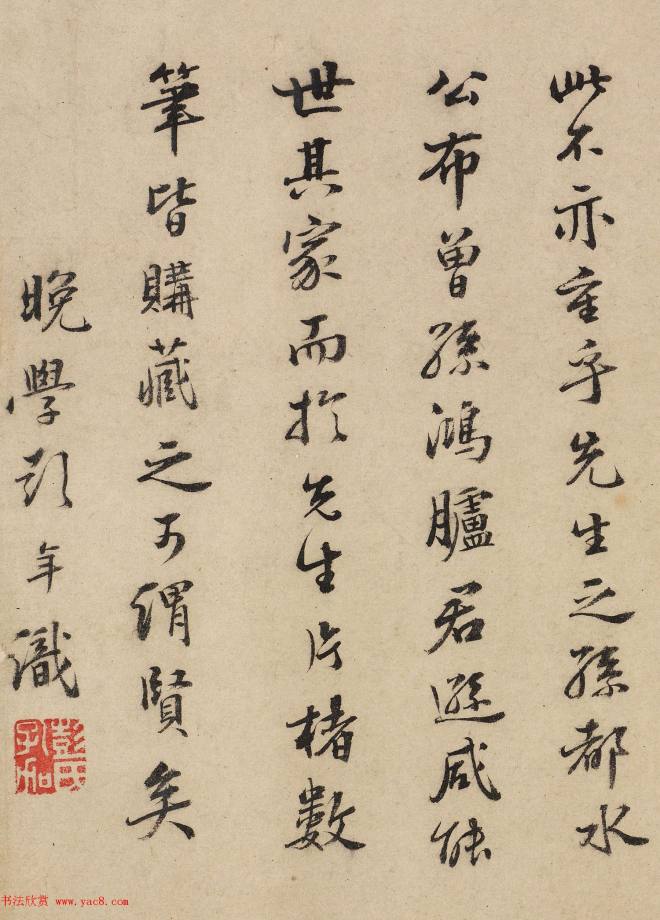 此不亦重乎先生之孫都水
公布曾孫鴻臚君遜咸能
世其家而於先生片楮數
筆皆購藏之可謂賢矣
晚學彭年識
彭氏孔加
书法欣赏 www.yac8.com